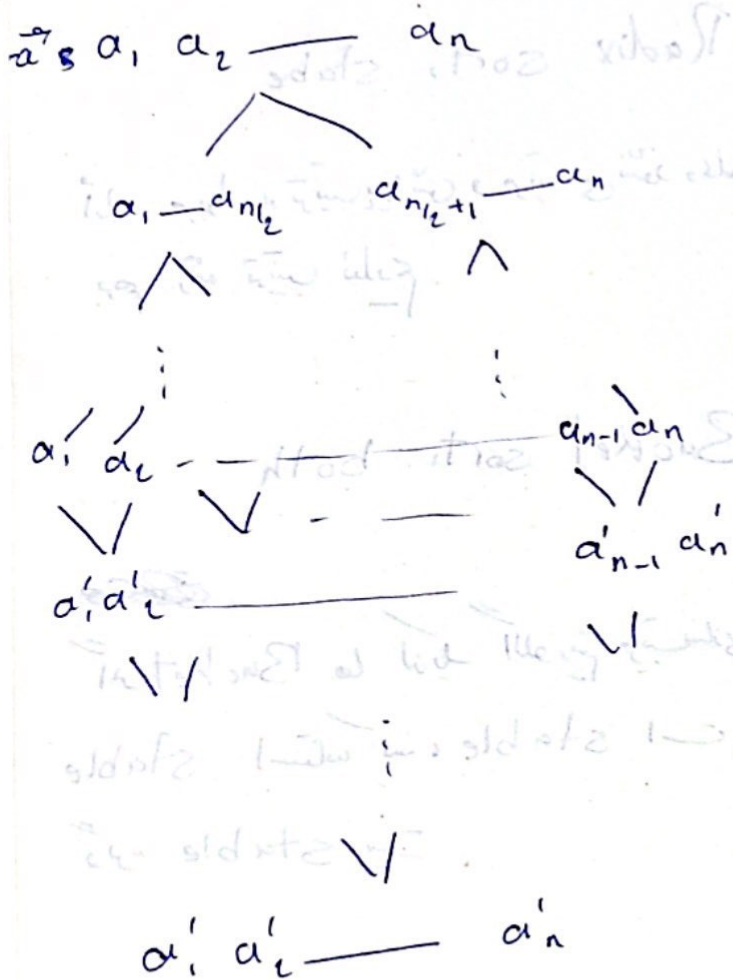 a₁ a₂ — aₙ
a₁ — aₙ/₂ aₙ/₂₊₁ — aₙ
a₁ a₂ - — aₙ₋₁ aₙ
a'ₙ₋₁ a'ₙ
a'₁ a'₂ —
a'₁ a'₂ — a'ₙ